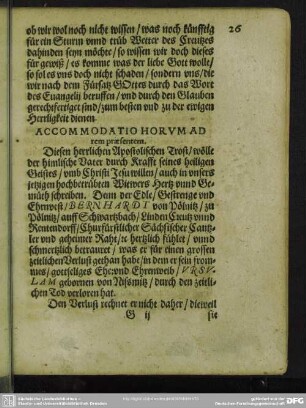 26
ob wir wol noch nicht wissen / was noch künfftig
für ein Sturm vnnd trüb Wetter des Creutzes
dahinden seyn möchte / so wissen wir doch dieses
für gewiß / es komme was der liebe Gott wolle /
so sol es vns doch nicht schaden / sondern vns / die
wir nach dem Fürsatz GOttes durch das Wort
des Euangelij beruffen / vnd durch den Glauben
gerechtfertiget sind / zum besten vnd zu der ewigen
Herrligkeit dienen.
ACCOMMODATIO HORVM AD
rem præsentem.
Diesen herrlichen Apostolischen Trost / wölle
der himlische Vater durch Krafft seines heiligen
Geistes / vmb Christi Jesu willen / auch in vnsers
jetzigen hochbetrübten Witwers Hertz vnnd Ge-
müth schreiben. Dann der Edle / Gestrenge vnd
Ehrnvest / BERNHARDT von Pölnitz / zu
Pölnitz / auff Schwartzbach / Linden Creutz vnnd
Rentendorff / Churfürstlicher Sächsischer Cantz-
ler vnd geheimer Raht / ꝛc hertzlich fühlet / vnnd
schmertzlich betrawret / was er für einen grossen
zeitlichen Verlust gethan habe / in dem er sein from-
mes / gottseliges Ehe vnd Ehrenweib / VRSV-
LAM gebornen von Nißmitz / durch den zeitli-
chen Tod verloren hat.
Den Verlust rechnet er nicht daher / dieweil
G ij
sie